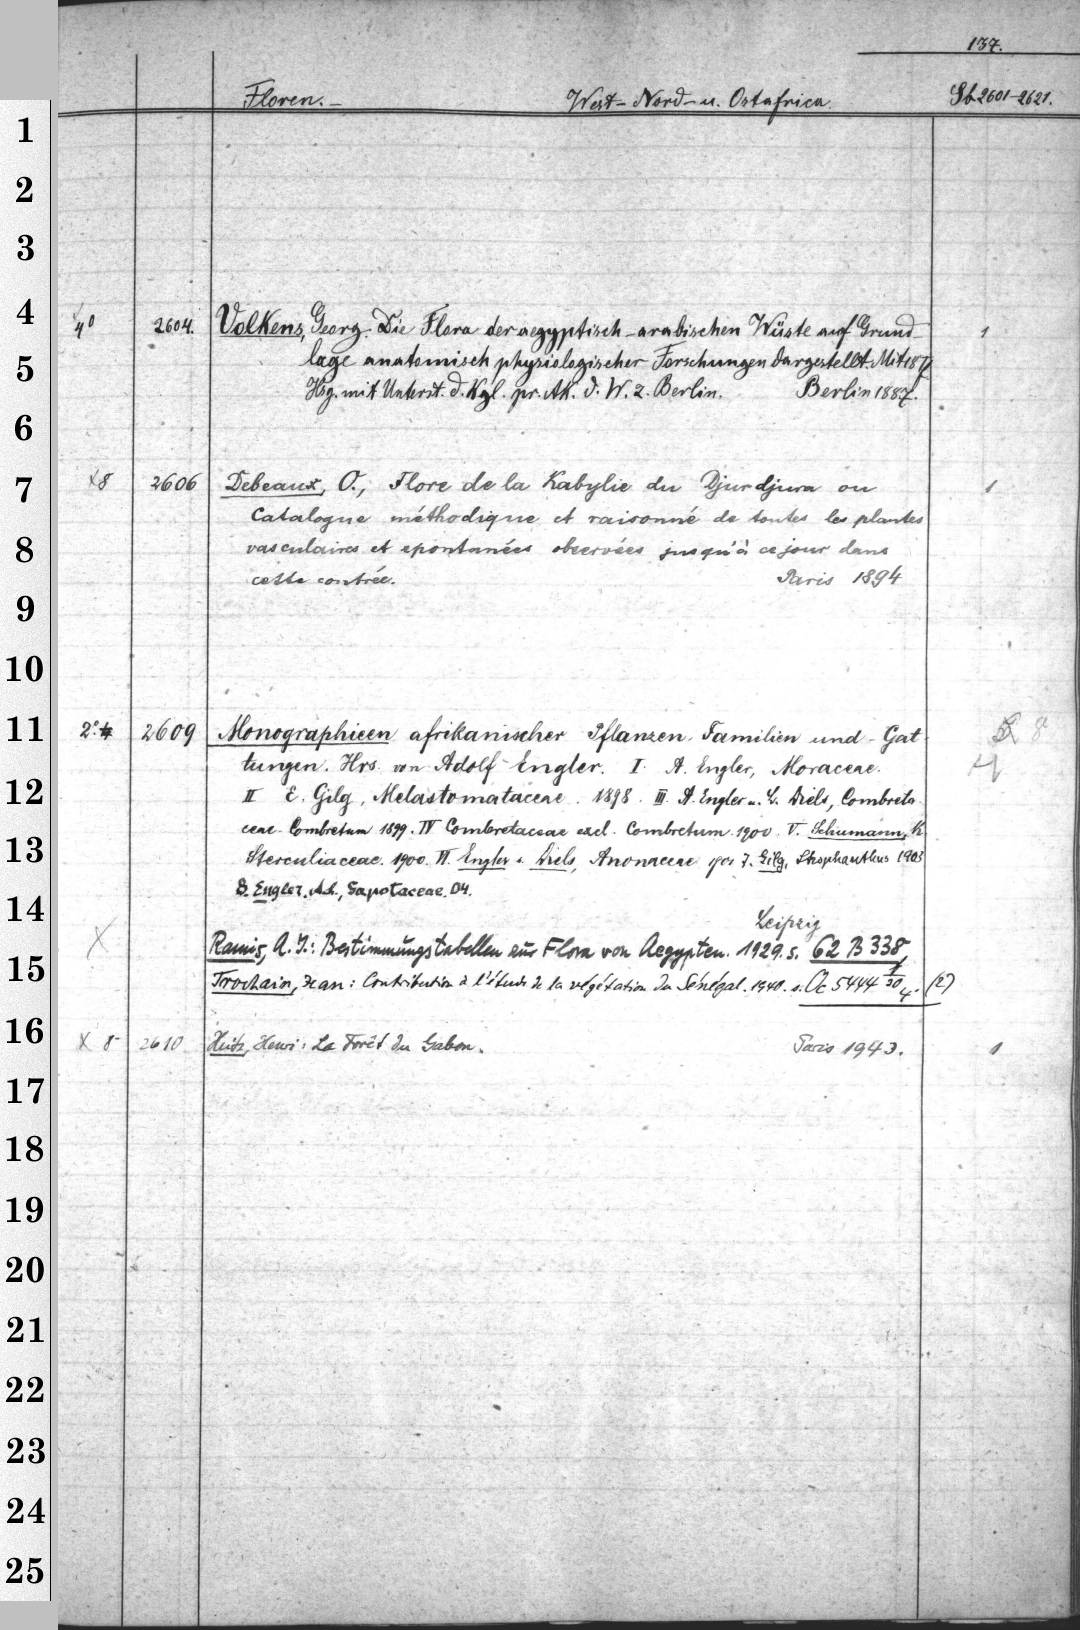 137.
Floren. – West- Nord- u. Ostafrica. Sb 2601-2621.
1
2
3
4 4° 2604. Volkens, Georg. Die Flora der aegyptisch-arabischen Wüste auf Grund- 1
5 lage anatomisch physiologischer Forschungen dargestellt. Mit 18
Hsg. mit Unterst. d. Kgl. pr. Ak. d. W. z. Berlin. Berlin 1887.
6
7 x8 2606 Debeaux, O., Flore de la Kabylie du Djurdjura ou 1
Catalogue méthodique et raisonné de toutes les plantes
8 vasculaires et spontanées observées jusqu'à ce jour dans
cette contrée. Paris 1894
9
10
11 2° 2609 Monographieen afrikanischer Pflanzen-Familien und -Gat
tungen. Hrs. von Adolf Engler. I. A. Engler, Moraceae.
12 II E. Gilg, Melastomataceae. 1898. III. A. Engler u. L. Diels, Combreta
ceae-Combretum 1899. IV Combretaceae excl. Combretum. 1900. V. Schumann, K.
13 Sterculiaceae. 1900. VI. Engler u. Diels, Anonaceae 1901 7. Gilg, Strophanthus 1903
8. Engler, A., Sapotaceae. 04.
14
Leipzig
X Ramis, A. I.: Bestimmungstabellen zur Flora von Aegypten. 1929. s. 62 B 338,
15 Trochain, Jean: Contribution à l'étude de la végétation du Sénégal. 1940. s. Oc 5444 (2)
16 x 8 2610 Heitz, Henri: La Forêt du Gabon. Paris 1943. 1
17
18
19
20
21
22
23
24
25